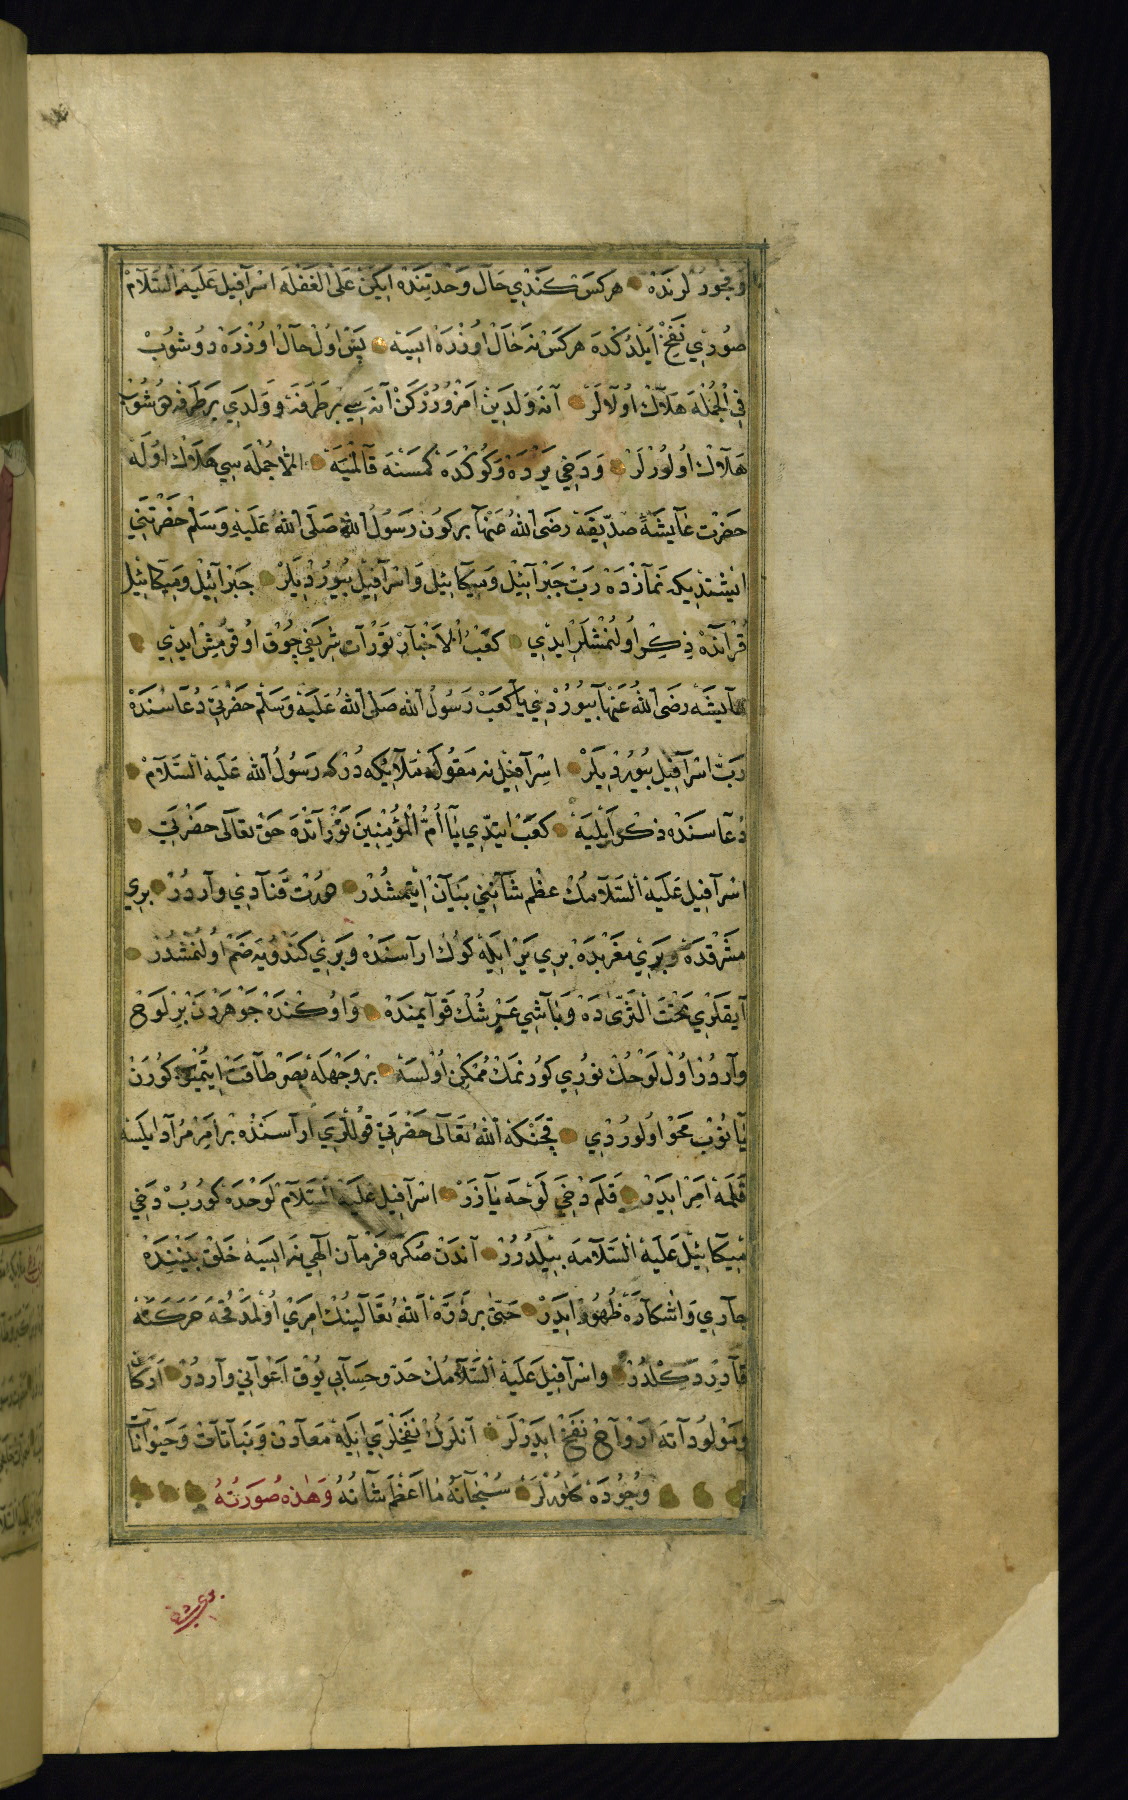 وفجور لرنده هركس كندي حال وحدتنده ايكن على الغفله اسرافيل عليه السلام
صوري نفخ ايلدكده هركس نه حال اوزره ايسه پس اول حال اوزره دوشوب
في الجمله هلاك اولالر آنه ولدين امزوررکن آنه سي بر طرفه وولدي بر طرفه دوشوب
هلاك اولورلر ودخي يرده وكوكده كمسنه قالميه الا جمله سي هلاك اوله
حضرت عايشة صديقه رضى الله عنها بركون رسول الله صلى الله عليه وسلم حضرتني
ايشتديكه نمازده رب جبرائيل وميكائيل واسرافيل بيورديلر جبرائيل وميكائيل
قرآنده ذكر اولنمشلر ايدي كعب الاخبار تورات شريفي چوق اوقومش ايدي
عايشه رضى الله عنها بيوردي يا كعب رسول الله صلى الله عليه وسلم حضرتي دعاسنده
رب اسرافيل بيورديلر اسرافيل نه مقوله ملائكه دركه رسول الله عليه السلام
دعاسنده ذكر ايليه كعب ايتدي يا ام المؤمنين توراتده حق تعالى حضرتي
اسرافيل عليه السلامك عظم شانني بيان ايتمشدر درت قنادي واردر بري
مشرقده وبري مغربده بري ير ايله كوك اراسنده وبري كندويه ضم اولنمشدر
آيقلري تحت الثرى ده وباشي عرشك قوايمنده واوكنده جوهردن بر لوح
واردر اول لوحك نوري كورنمك ممكن اولسه بر وجهله بصر طاقت ايتميوب كورن
يانوب محو اولوردي قچنكه الله تعالى حضرتي قوللري اراسنده بر امر مراد ايلسه
قلمه امر ايدر قلم دخي لوحه يازر اسرافيل عليه السلام لوحده كورب دخي
ميكائيل عليه السلامه بيلدرر آندن صكره فرمان الهي نه ايسه خلق بيننده
جاري واشكاره ظهور ايدر حتى بر ذره الله تعالينك امري اولمدقجه حركته
قادر دكلدر واسرافيل عليه السلامك حد وحسابي يوق اعواني واردر اركان
ومولوداته ارواح نفخ ايدرلر آنلرك نفخلري ايله معادن ونباتات وحيوانات
وجوده كلورلر سبحانه ما اعظم شانه وهذه صورته